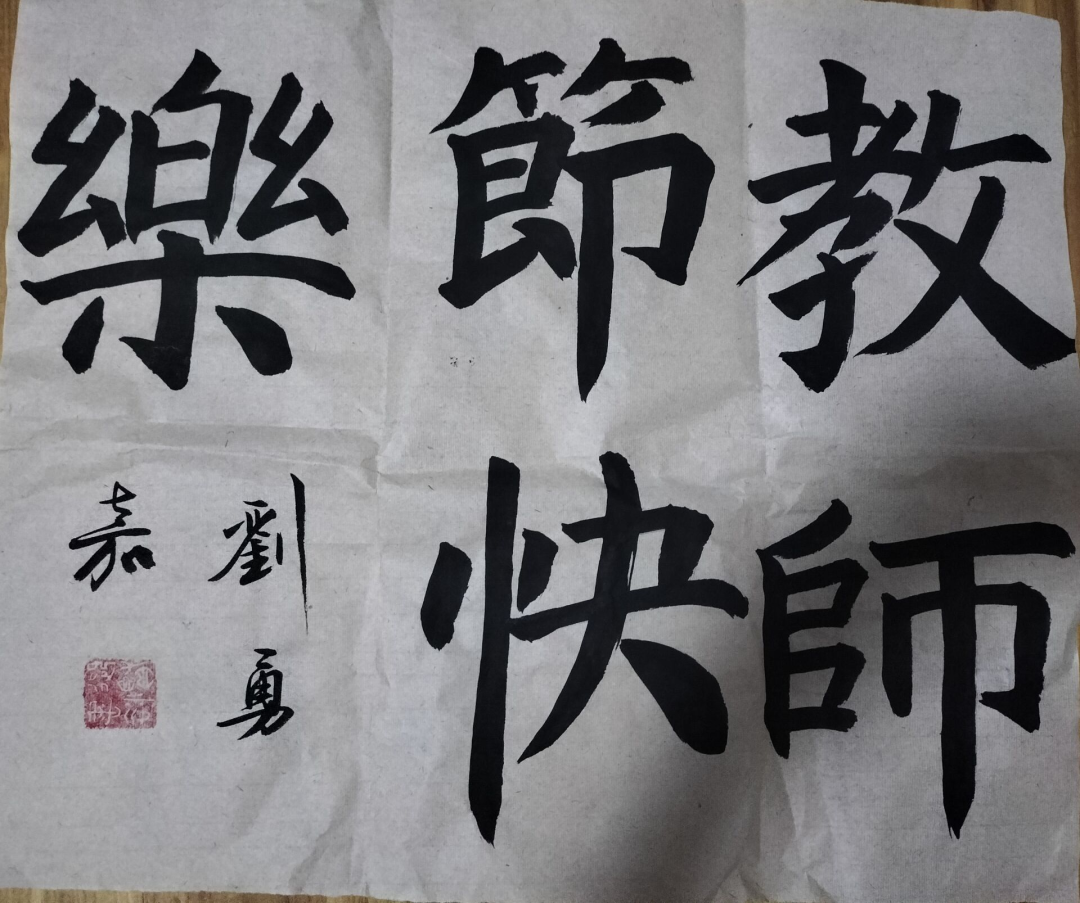 教師
節快
樂
劉勇
嘉